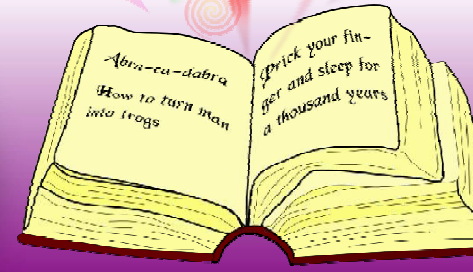 Abra-ca-dabra
How to turn man
into frogs
Prick your fin-
ger and sleep for
a thousand years